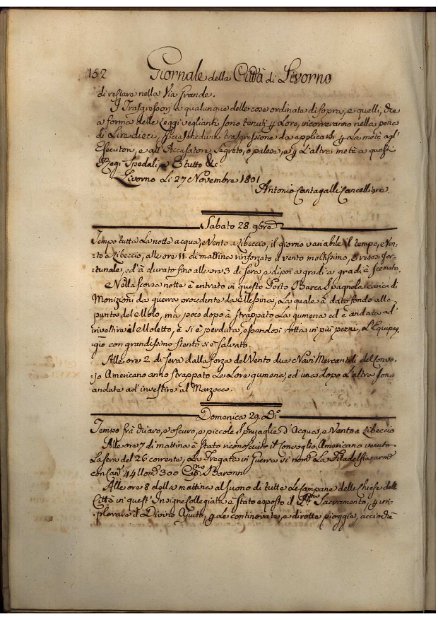 152 Giornale della Città di Livorno
di restare nella Via Grande.
I Trasgressori a qualunque delle cose ordinate di sopra, e quelli, che
a forma delle Leggi veglianti sono tenuti p. Loro, incorreranno nella pena
di Lire dieci, trasgressione da applicarsi p. La metà agl'
Esecutori, e all'Accusatore Segreto, o palese, e p. L'altra metà a questi
Regj Spedali, e tutto di
Livorno Li 27 Novembre 1801
Antonio Cantagalli Cancelliere
Sabato 28 9bre
Tempo tutta La notte acqua, e Vento a Libeccio, il giorno variabile il tempo, e Ven-
to a Libeccio, alle ore 11 di mattina rinforzato il vento moltissimo,
, ed à durato fino alle ore 3 di sera, e di poi a grado a grado
Nella scorsa notte è entrata in questo Porto Barca Spagnola carica di
Monizioni da guerra procedente dalla Spezia, La quale à dato fondo alla
punta del Molo, ma poco dopo à strappato La gumena ed è andata ad
investire al Moletto, e si è perduta, in più pezzi, L'Equipag-
gio con grandissimo stento si è salvato.
Alle ore 2 di sera dalla forza del Vento due Navi Mercantili del Convo-
jo Americano anno strappato La Loro gumena, ed una dopo L'altra sono
andate ad investire al Marzocco.
Domenica 29 Do
Tempo frà chiaro, e oscuro, e piccole Spruzzaglie d'Acqua, e Vento a Libeccio
Alle ore 7 di mattina è stato riconosciuto il Convoglio Americano venuto
La sera del 26 corrente, La Fregata in Guerra si nomà La Filadelfia armata
con Cannoni 44 Uomini 300 Capno Barronn
Alle ore 8 della mattina al suono di tutte Le Campane delle Chiese della
Città in quest'Insigne Collegiata è stato esposto il Sacramento, p. im-
plorare il Divino Ajuto, p. Le continovate, e dirotte pioggie, acciochè